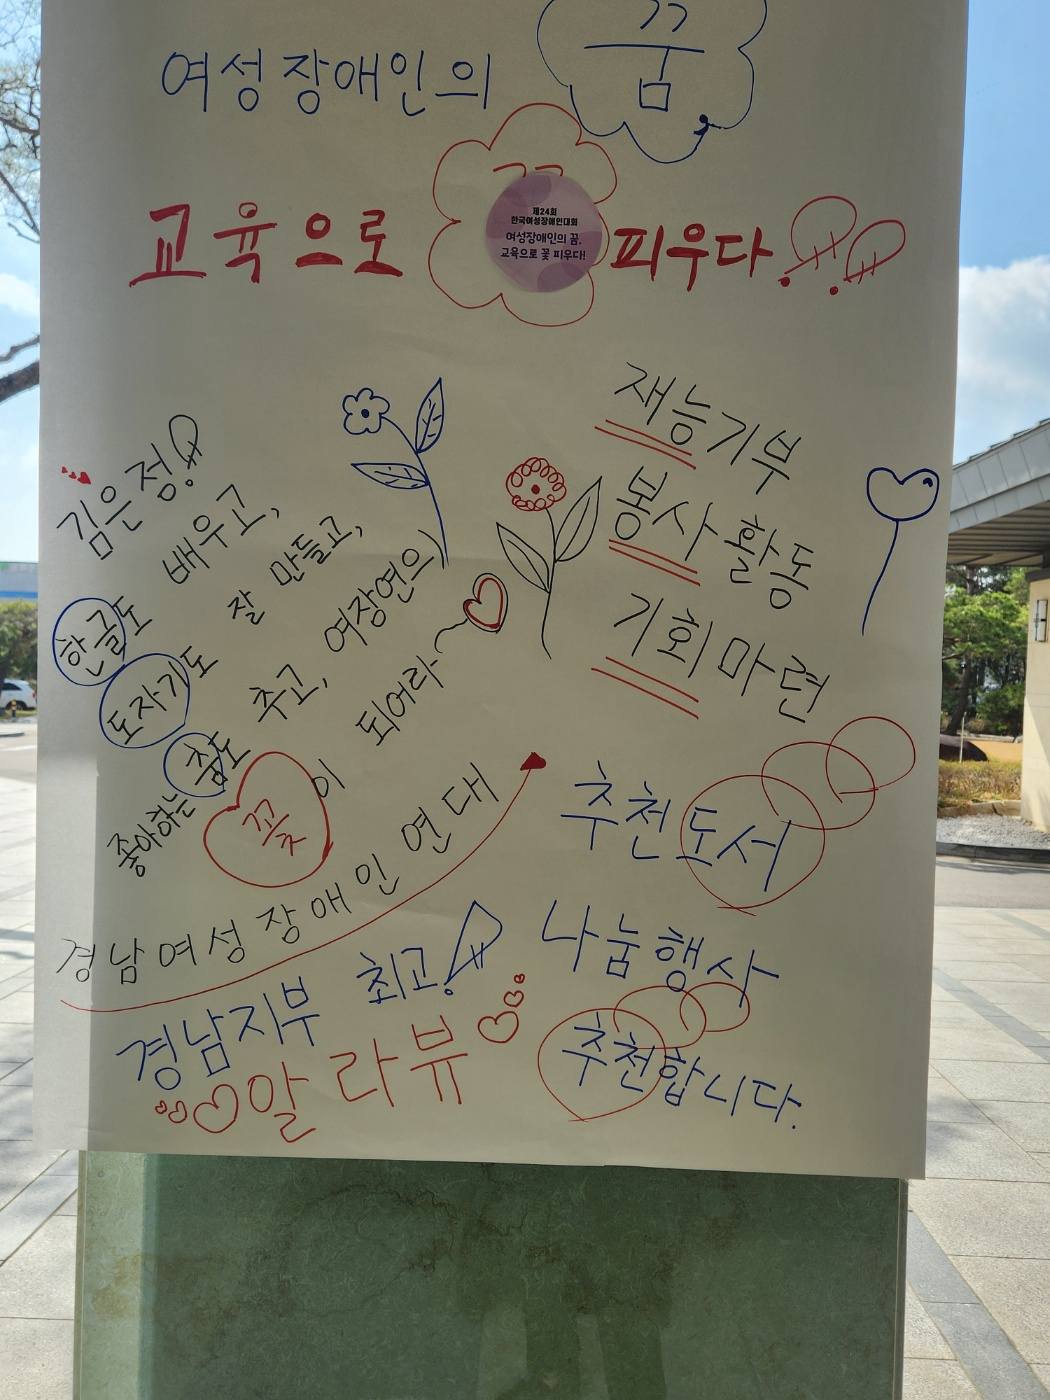 여성장애인의 꿈,
교육으로 피우다!!
제24회
한국여성장애인대회
여성장애인의 꿈,
교육으로 꽃 피우다!
김은정!
한글도 배우고,
도자기도 잘 만들고,
춤도 추고, 여장연의
좋아하는 꽃이 되어라~
경남여성장애인연대
경남지부 최고!
알라뷰
재능기부
봉사활동
기회마련
추천도서
나눔행사
추천합니다.